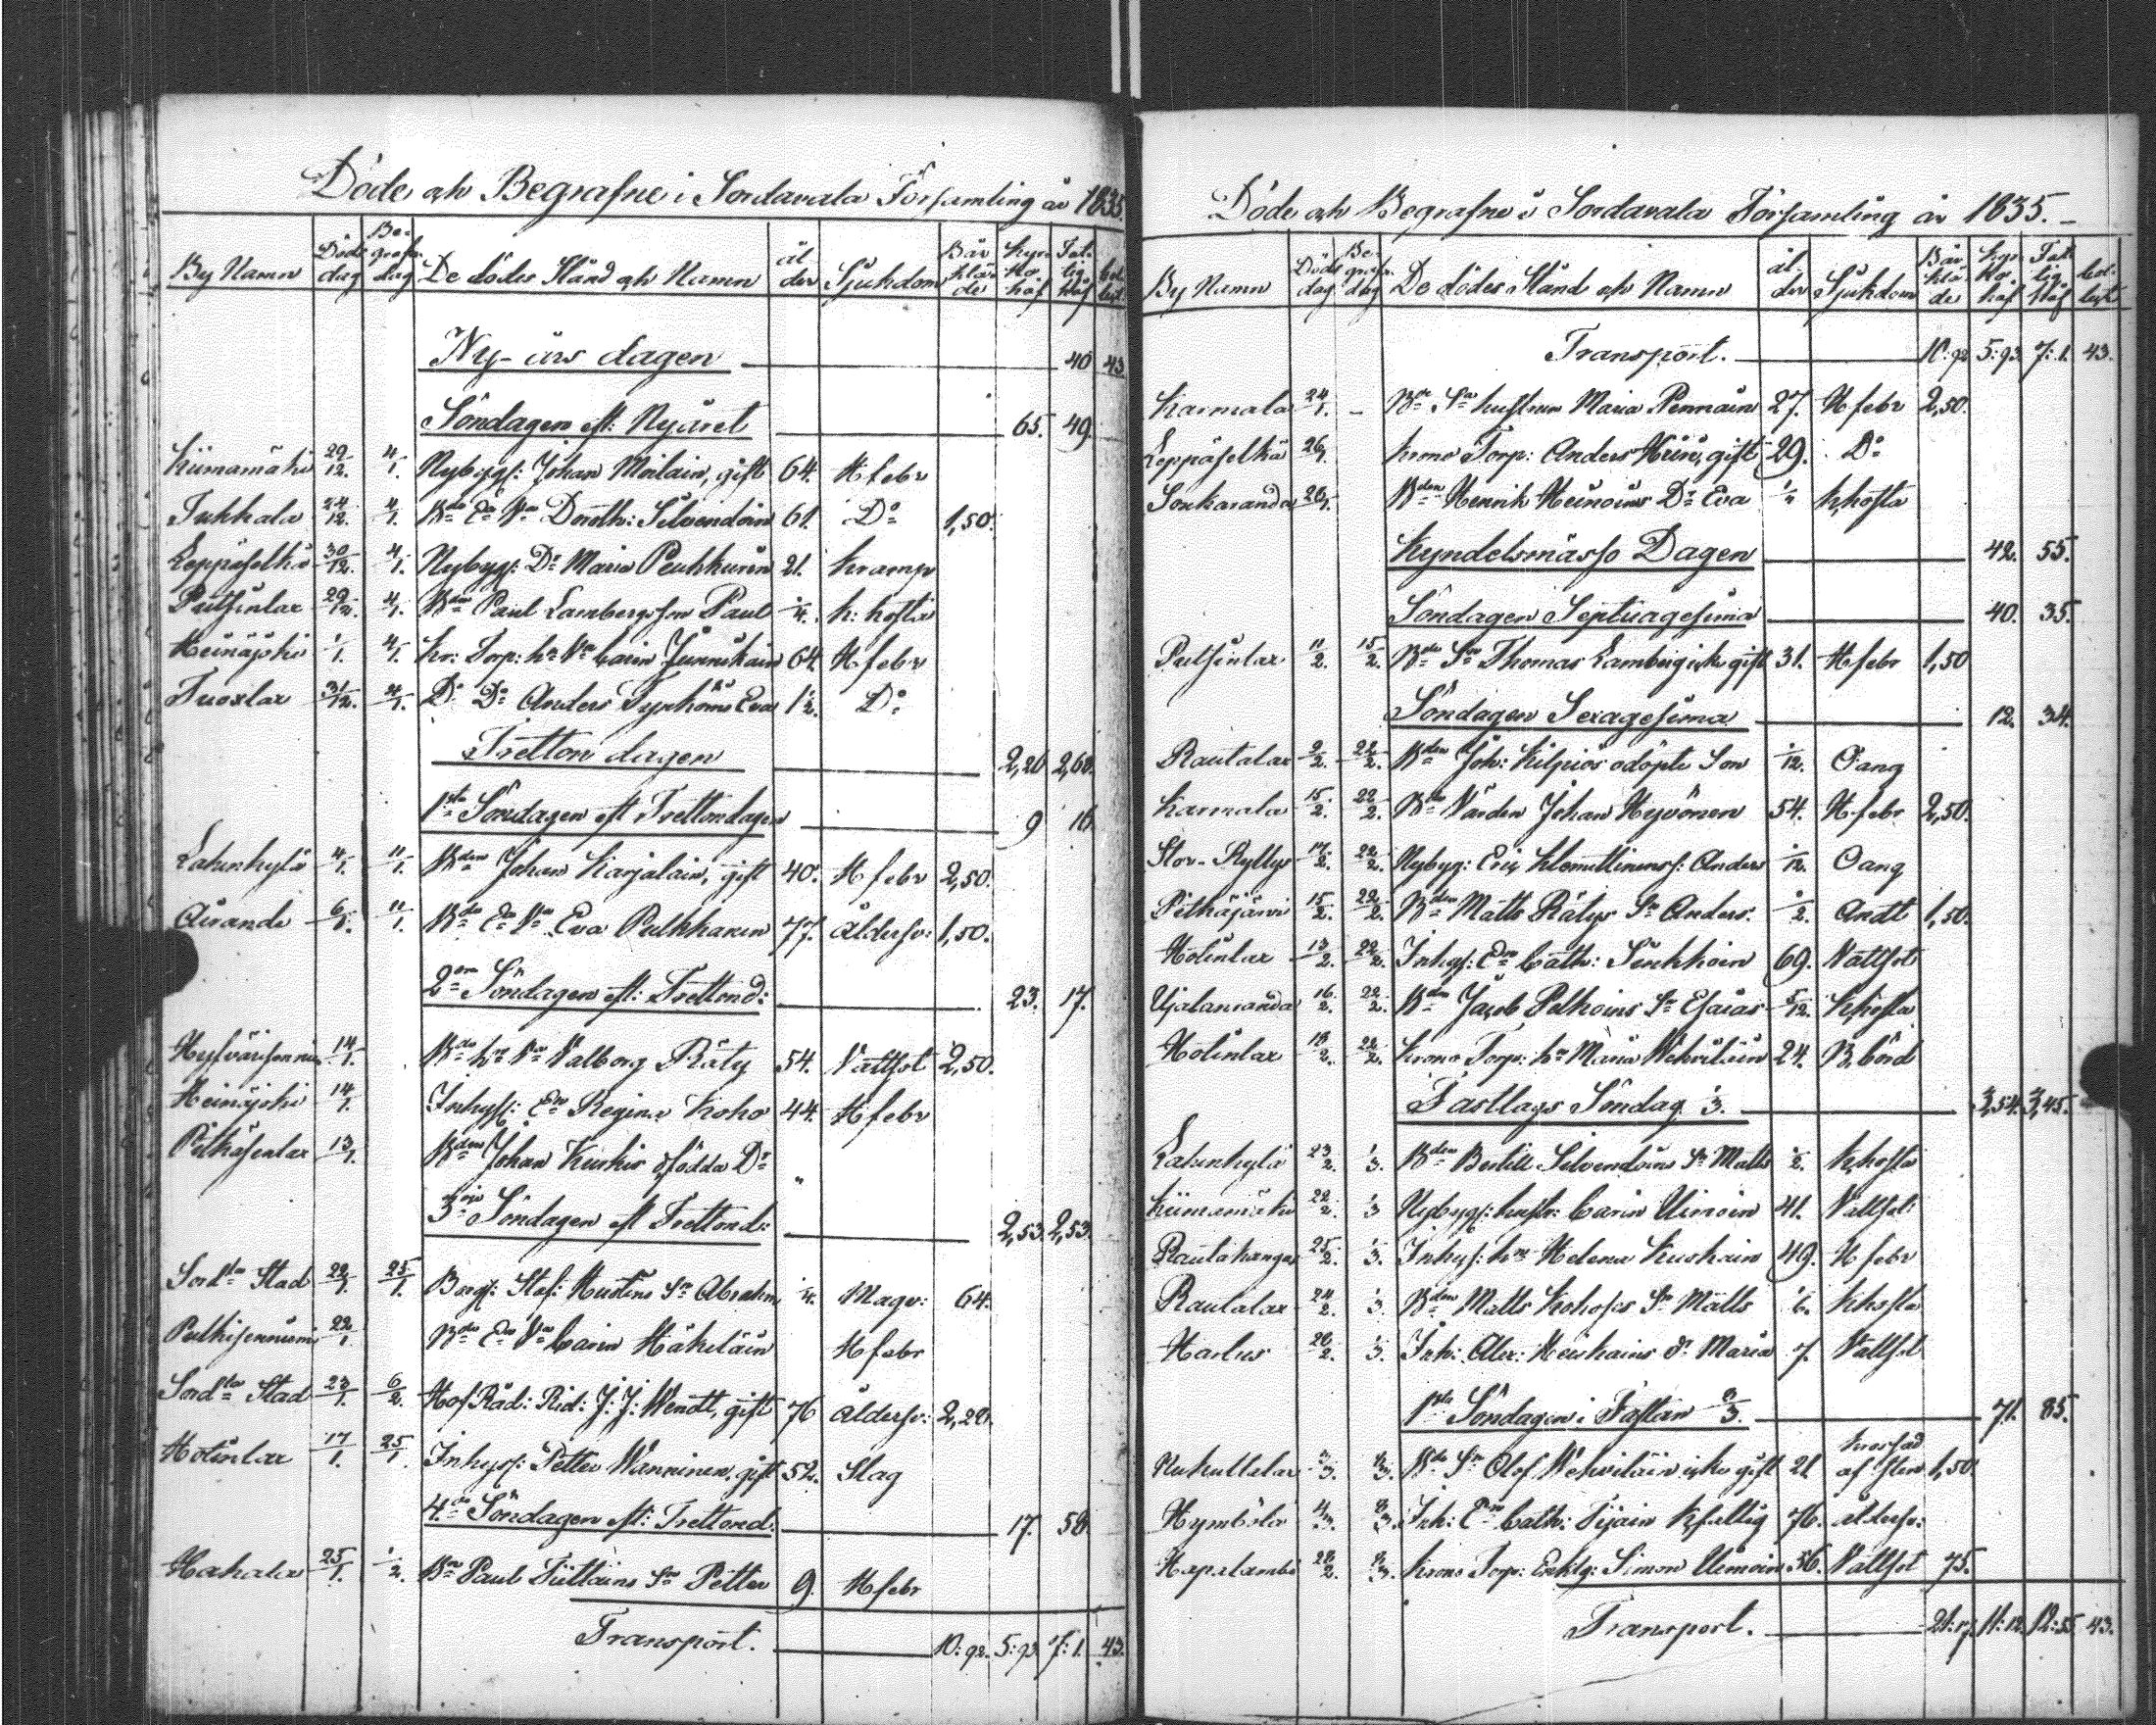 Döde och Begrafne i Sordavala Församling år 1835.
By Namn Döds dag Begrafn: dag De dödes Stånd och Namn ål der Sjukdom Bår klä de Kyr ko håf Fat tig håf
Ny-års dagen 40 43.
Söndagen eft: Nyåret 65. 49.
Kiimamäki 29/12. 4/1 Nybygg: Johan Moilain, gift 64. H febr
Tukkala 24/12. 4/1. Bde Ea Va Doroth: Silvendoin 61. Do 1,50.
Leppäselkä 30/12. 4/1. Nybygg: Dr Maria Peuhkurin 21. Kramp
Putsinlax 29/12. 4/1. Bdn Paul Lambergs son Paul k: hosta
Heinäjoki 1/1. 4/1. Kr: Torp: hu Va Carin Junnikain 64. H febr
Tuoxlax 31/12. 4/1. Do Do Anders Eva 1 1/2. Do
Tretton dagen 2,20 2,60.
1sta Söndagen eft Trettondagen 9 16
Lahenkylä 4/1. 11/1. Bden Johan Karjalain, gift 40. H febr 2,50.
Airanda 6/1. 11/1. Bde Ea Va Eva Pulkkanen 77. Åldersv: 1,50.
2dra Söndagen eft: Trettond: 23. 17.
14/1. Bde hu Va Valborg Räty 54. Vattsot 2,50.
Heinäjoki 14/1. Inhys: Ea Regina Koho 44. H febr
Pitkäsenlax 13/1. Bden Johan Kuskis ofödda Dr "
3die Söndagen eft Trettond: 2,53. 2,53.
Sordla Stad 22/1. 25/1. Borg: Staf: Hustins Sn Abrahm Magv: 64.
22/1 Bde Ea Va Carin Häkiläin H febr
Sordla Stad 23/1. 6/2. Hof Råd: Rid: J: J: Wendt, gift 76 Åldersv: 2,28.
Hotinlax 17/1. 25/1. Inhys: Petter Wänninen, gift 52. Slag
4de Söndagen eft: Trettond: 17. 58.
Hakala 25/1. 1/2. Bn Paul Tiittains Sn Petter 9. H febr
Transport. 10:92. 5:93. 7:1. 43.
Döde och Begrafne i Sordavala Församling år 1835.
By Namn Döds dag Begrafn: dag De dödes Stånd och Namn ål der Sjukdom Bår klä de Kyr ko håf Fat tig håf
Transport. 10:92 5:93. 7:1. 43.
Karmala 24/1. Bde Sn hustrun Maria Pennain 27. H febr 2,50.
Leppäselkä 26/1. Krono Torp: Anders gift 29. Do
Sonkaranda 26/1. Bden Henrik Heinoins Dr Eva k,hosta
Kyndelsmässo Dagen 42. 55.
Söndagen Septuagesima 40. 35.
Putsinlax 11/2. 15/2. Bde Sn Thomas Lamberg icke gift 31. H febr 1,50
Söndagen Sexagesima 12. 34.
Rautalax 9/2. 22/2. Bden Joh: Kilpiös odöpte Son 1/12. Oäng
Karmala 15/2. 22/2. Bde Värden Johan Hyvönen 54. H febr 2,50.
Stor-Ryttys 17/2. 22/2. Nybyg: Eric Klemettinens s: Anders 1/12. Oäng
Pitkäjärvi 15/2. 22/2. Bden Matts Rätys Sn Anders. 1/2. Andt 1,50.
Hotinlax 13/2. 22/2. Inhys: Ea Cath: Sinkkoin 69. Vattsot
Ujalanranda 16/2. 22/2. Bdn Jacob Pelkoins Sn Esaias 5/12. K,hosta
Hotinlax 18/2. 22/2. Krono Torp: hu Maria Wehviläin 24. B, börd
Fastlags Söndag 1/3. 3,54. 3,45.
Lahenkylä 23/2. 1/3. Bden Bertill Silvendoins Sn Matts 1/2. K,hosta
Kiimamäki 22/2. 1/3 Nybygg: hustr: Carin Uimoin 41. Vattsot:
Rautakangas 25/2. 1/3. Inhys: hu Helena Kuskain 49. H febr
Rautalax 24/2. 1/3. Bden Matts Kohos Sn Matts K,hosta
Harlus 20/2. 1/3. Inh: Alex: Dr Maria 7. Vattsot
1sta Söndagen i Fastan 8/3. 71. 85.
Kukuttalax 3/3. 8/3. Bde Sn Olof Wehviläin icke gift 21 krossad af sten 1,50.
Hymbölä 4/3. 8/3. Inh: Ea Cath: Tijain K,fattig 76. Åldersv:
Haxalambi 28/2. 8/3. Krono Torp: Enkling: Simon Uimoin 56. Vattsot 75.
Transport. 21:17. 11:12. 12:55. 43.